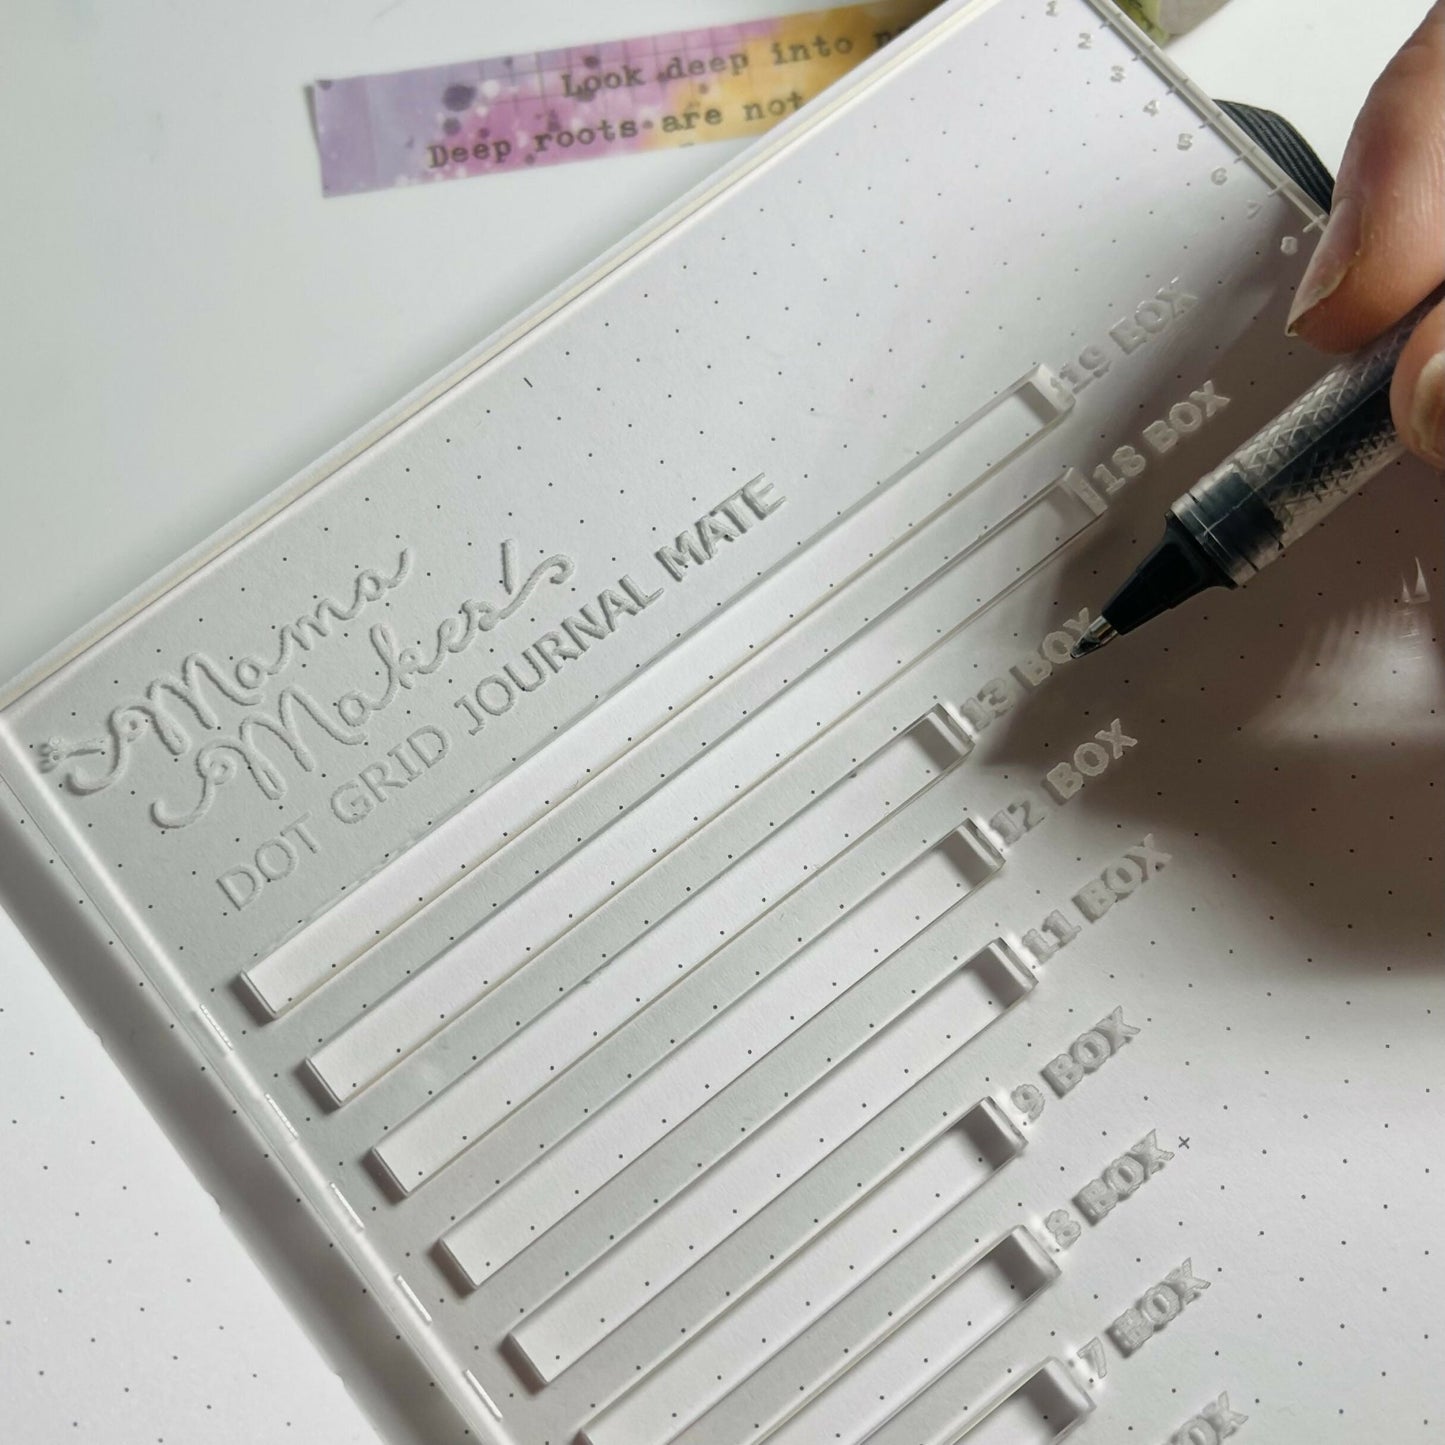 Look deep into
Deep roots are not
1
2
3
4
5
6
7
8
Mama
Makes!
DOT GRID JOURNAL MATE
19 BOX
18 BOX
13 BOX
12 BOX
11 BOX
9 BOX
8 BOX
7 BOX
BOX